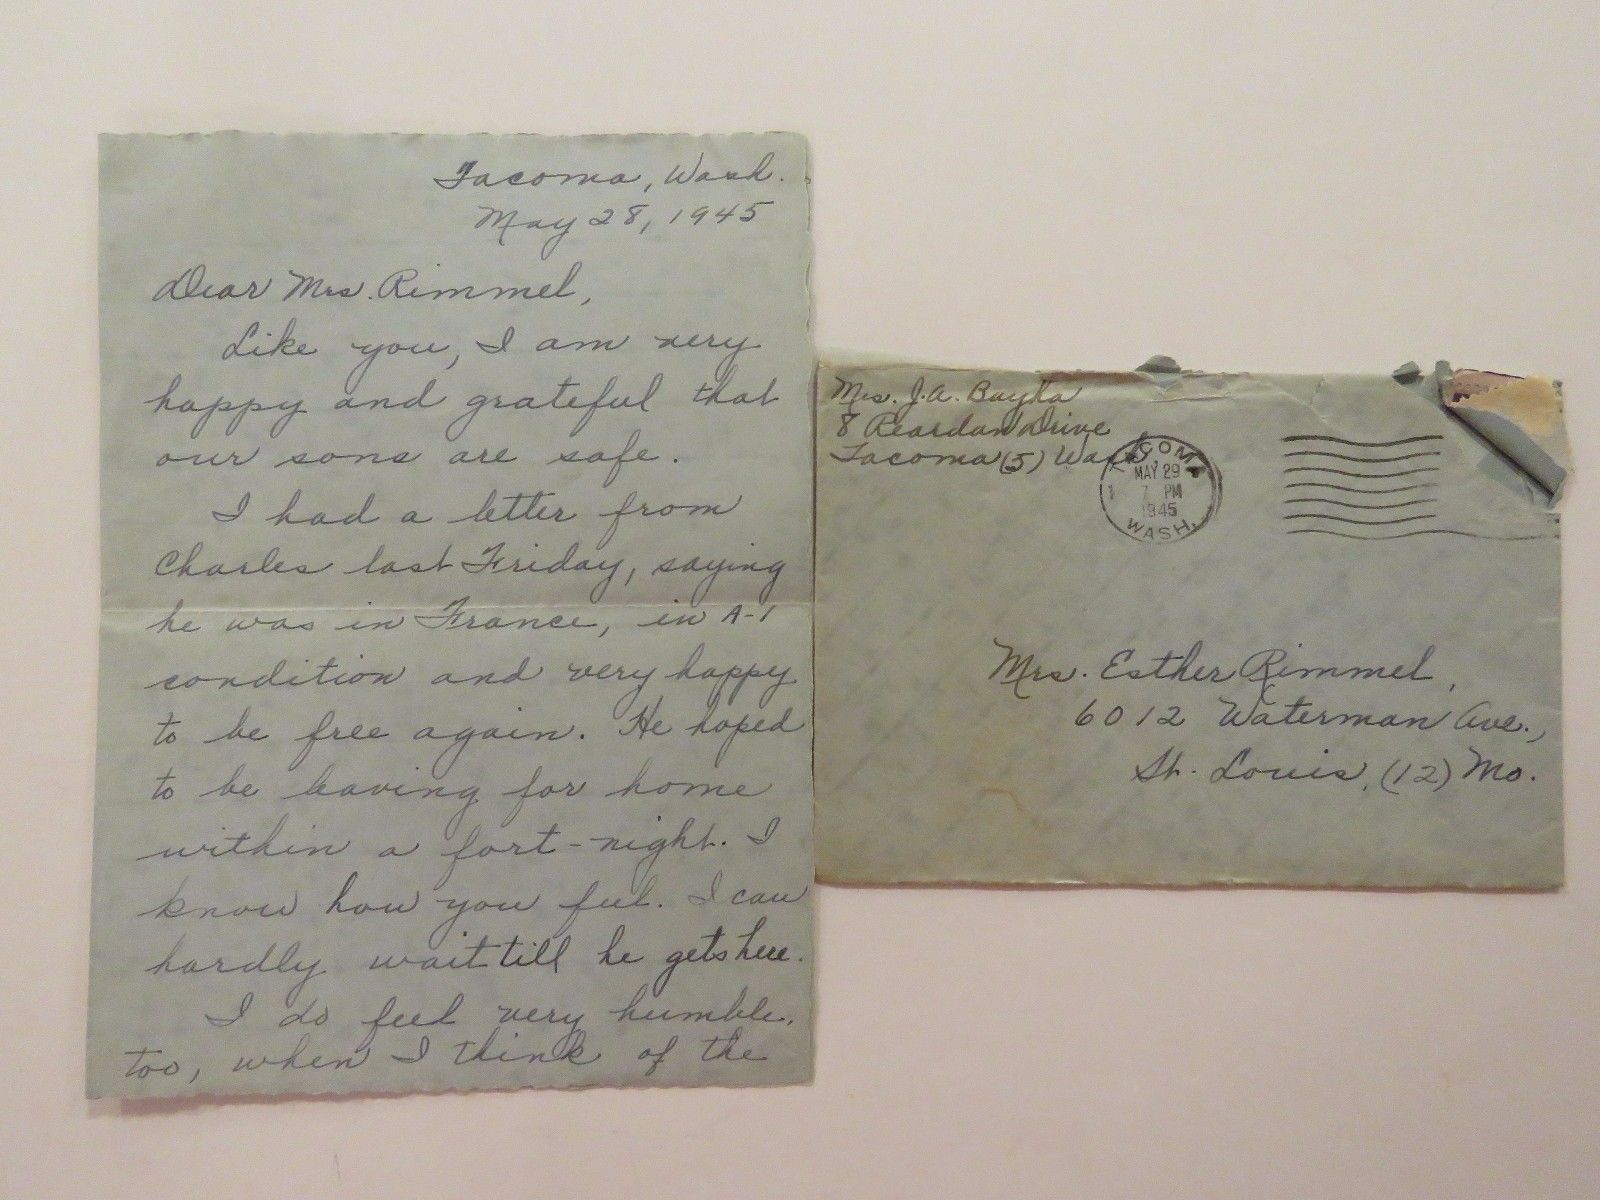 Tacoma, Wash.
May 28, 1945
Dear Mrs. Rimmel,
Like you, I am very
happy and grateful that
our sons are safe.
I had a letter from
Charles last Friday, saying
he was in France, in A-1
condition and very happy
to be free again. He hoped
to be leaving for home
within a fort-night. I
know how you feel. I can
hardly wait till he gets here.
I do feel very humble,
too, when I think of the
Mrs. J.A.
8 Reardan Drive
Tacoma (5) Wash
TACOMA
MAY 29
7 PM
1945
WASH.
Mrs. Esther Rimmel,
6012 Waterman Ave.,
St. Louis, (12) Mo.